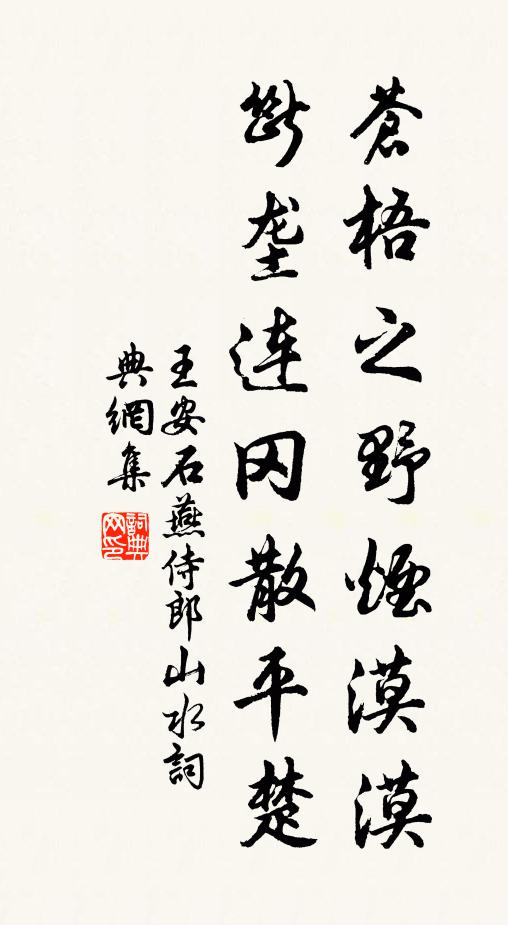 蒼梧之野煙漠漠
斷壟連冈散平楚
王安石燕侍郎山水詞
典網集
詞典
网印